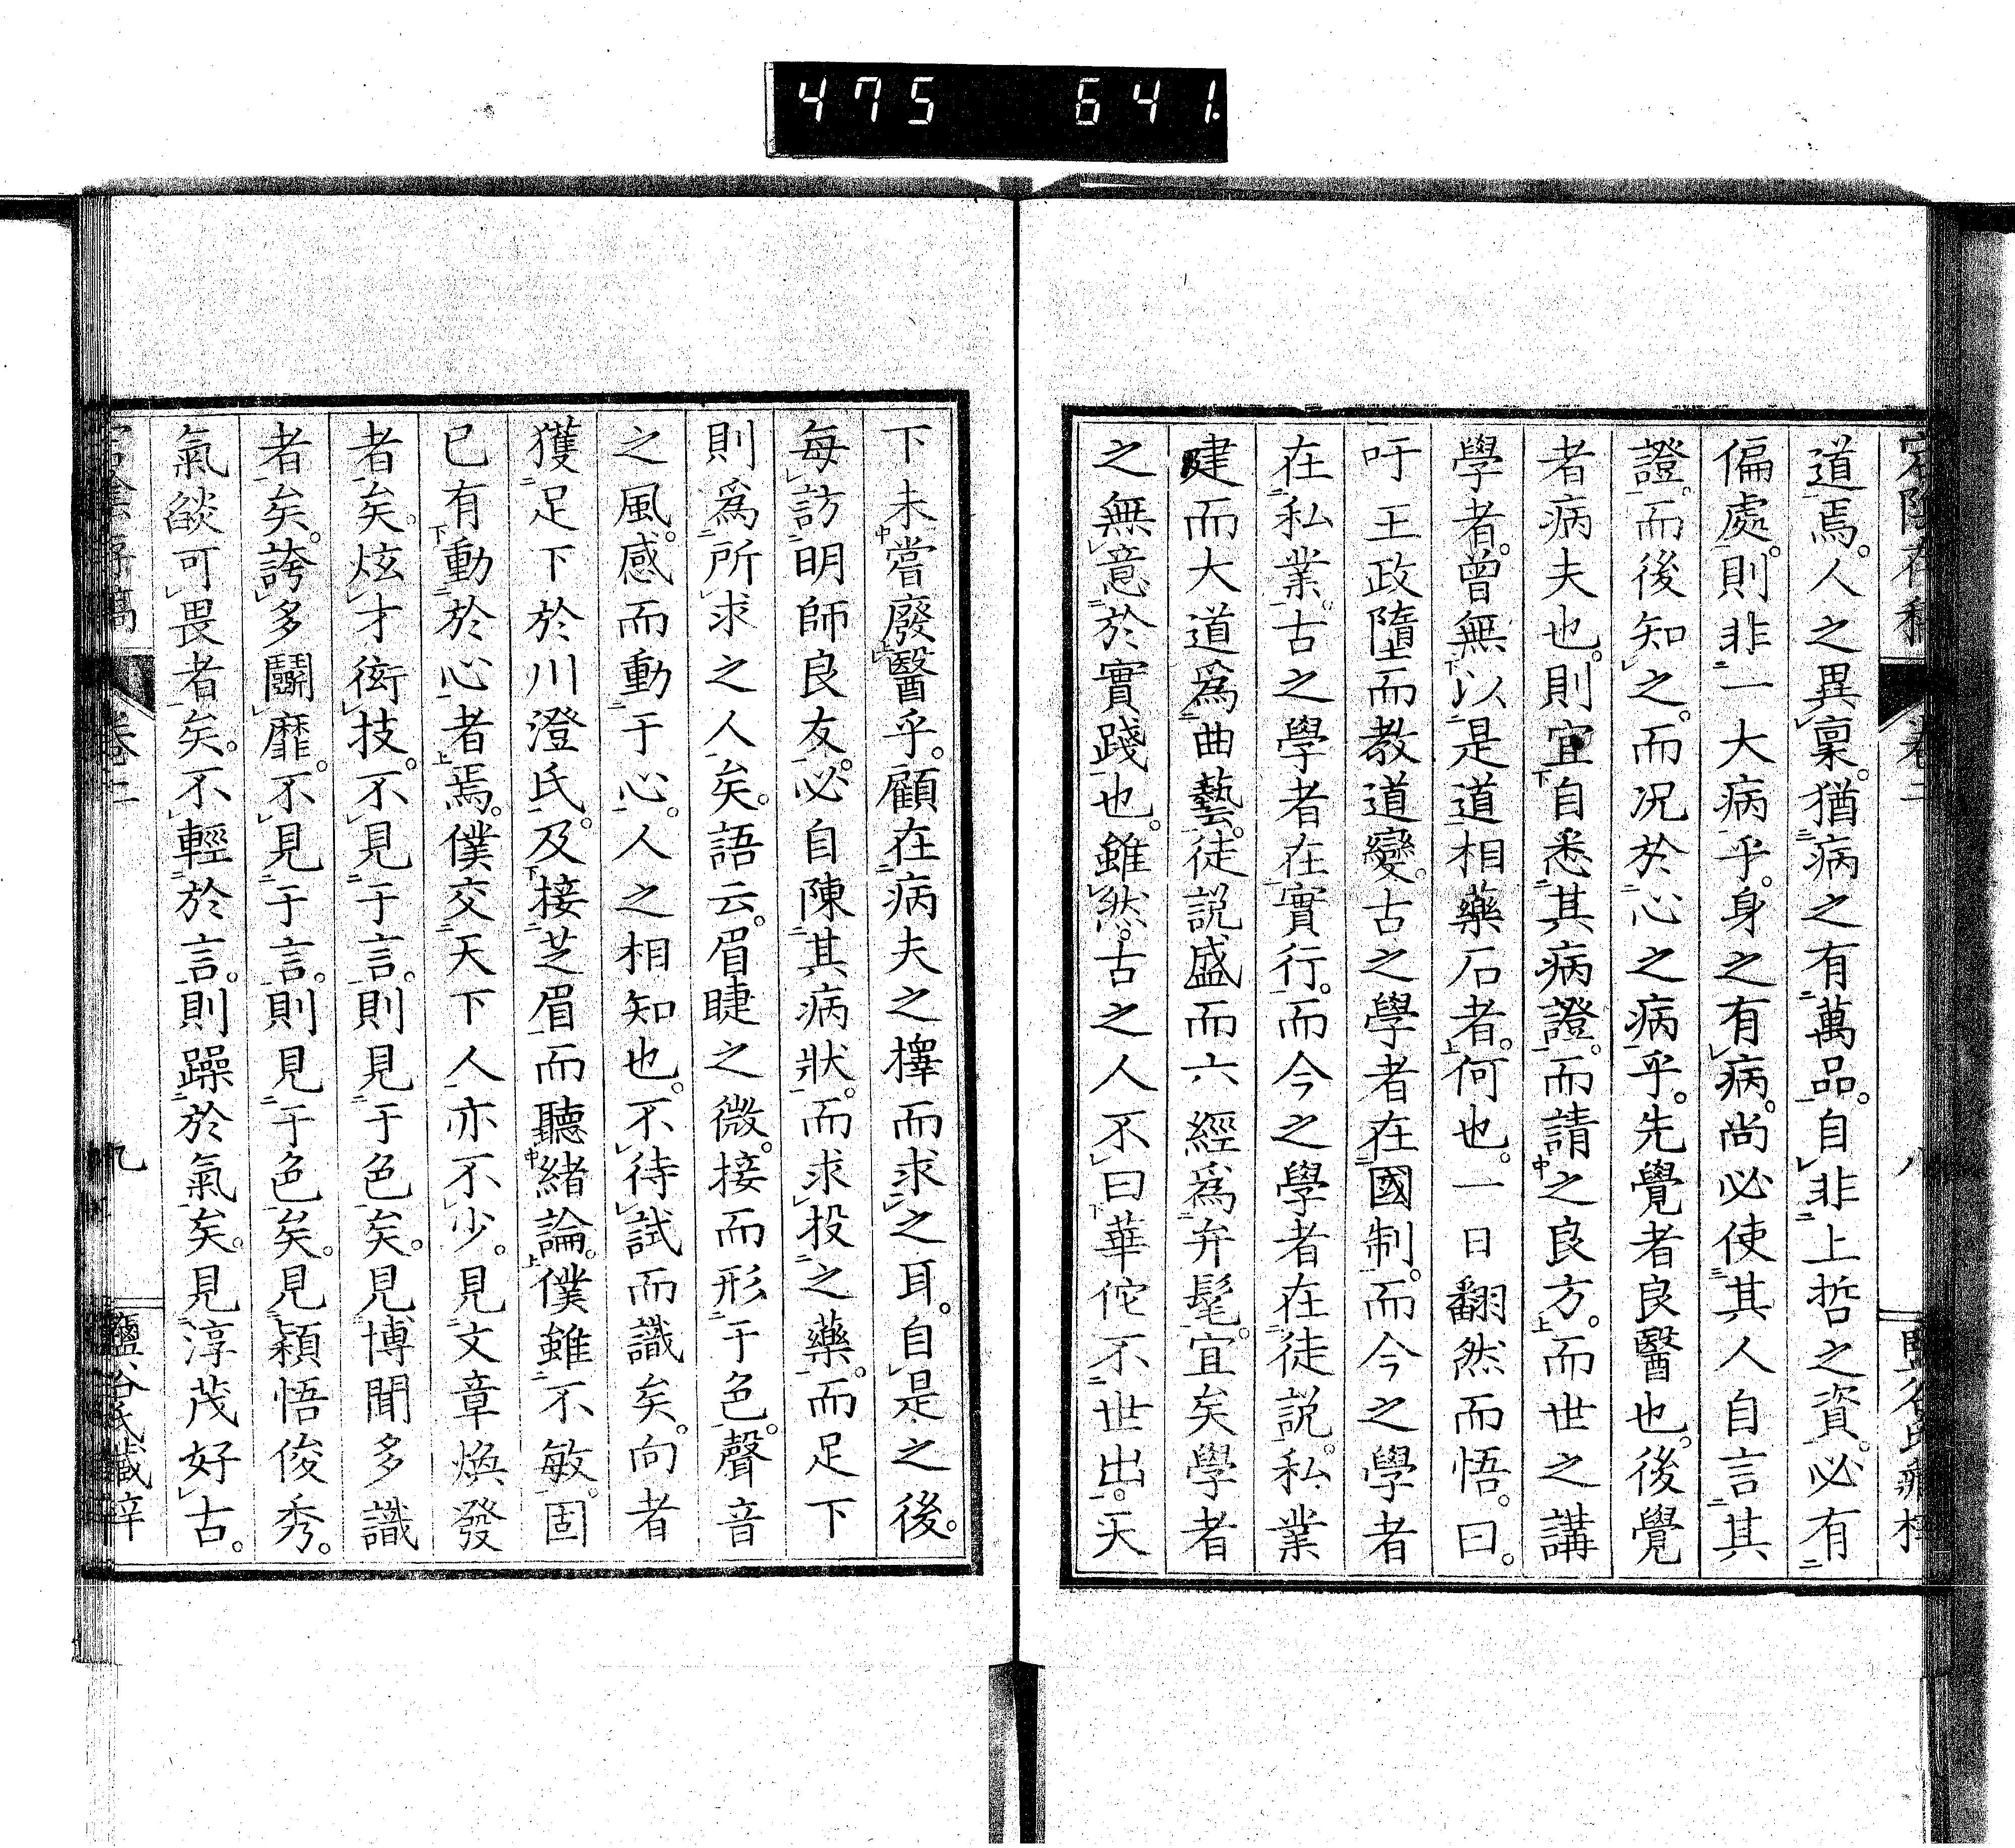 475 641
道焉。人之異稟。猶病之有萬品。自非上哲之資。必有
偏處。則非一大病乎。身之有病。尚必使其人自言其
證。而後知之。而況於心之病乎。先覺者良醫也。後覺
者病夫也。則宜自悉其病證。而請之良方。而世之講
學者。曾無以是道相藥石者。何也。一日翻然而悟。曰。
吁王政墮而教道變。古之學者在國制。而今之學者
在私業。古之學者在實行。而今之學者在徒說。私業
建而大道爲曲藝。徒説盛而六經爲弁髦。宜矣學者
之無意於實踐也。雖然。古之人不曰華佗不世出。天
卷二
八
下未嘗廢醫乎。顧在病夫之擇而求之耳。自是之後。
每訪明師良友。必自陳其病狀。而求投之藥。而足下
則爲所求之人矣。語云。眉睫之微。接而形于色。聲音
之風。感而動于心。人之相知也。不待試而識矣。向者
獲足下於川澄氏。及接芝眉而聽緒論。僕雖不敏。固
已有動於心者焉。僕交天下人亦不少。見文章煥發
者矣。炫才衒技。不見于言。則見于色矣。見博聞多識
者矣。誇多鬬靡。不見于言。則見于色矣。見穎悟俊秀。
氣燄可畏者矣。不輕於言。則躁於氣矣。見淳茂好古。
卷二
九